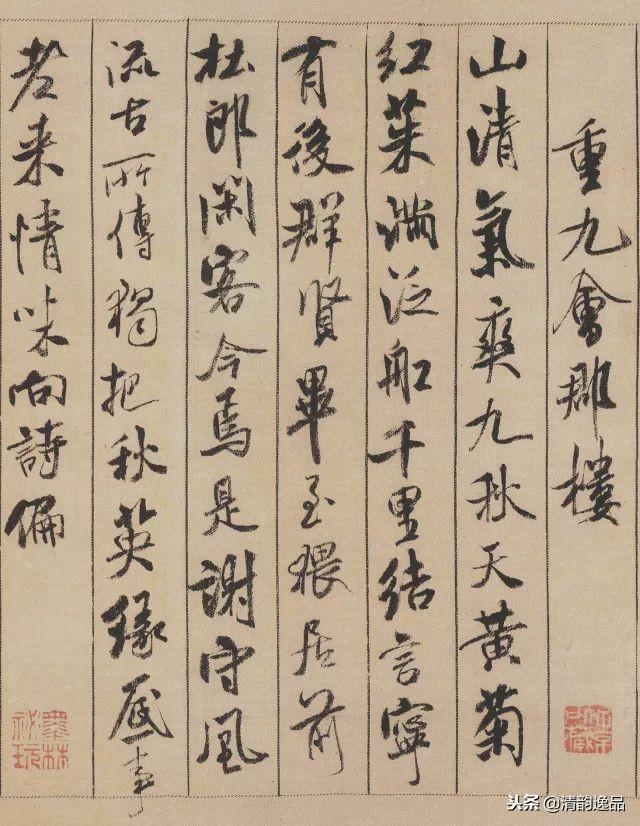 重九會郡樓
山清氣爽九秋天黃菊
紅茱滿泛船千里結言寧
有後群賢畢至猥居前
杜郎閑客今焉是謝守風
流古所傳獨把秋英緣底事
老来情味向詩偏
头条 @清韵逸品